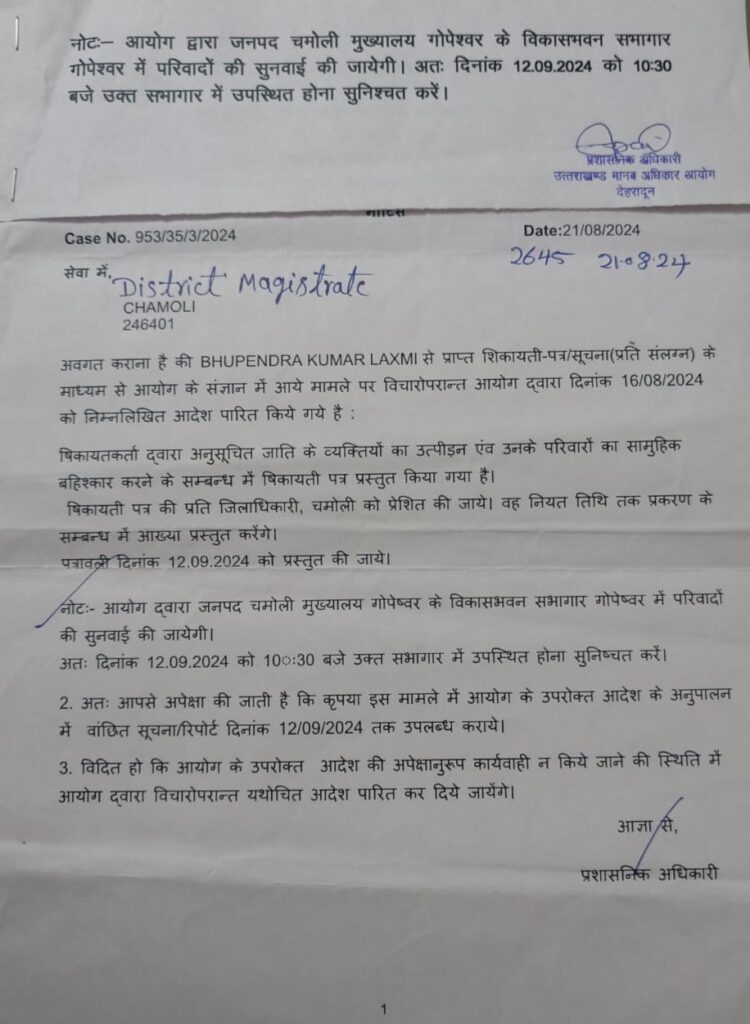 नोटः– आयोग द्वारा जनपद चमोली मुख्यालय गोपेश्वर के विकासभवन सभागार
गोपेश्वर में परिवादों की सुनवाई की जायेगी। अतः दिनांक 12.09.2024 को 10:30
बजे उक्त सभागार में उपस्थित होना सुनिश्चत करें।
प्रशासनिक अधिकारी
उत्तराखण्ड मानव अधिकार आयोग
देहरादून
नोटिस
Case No. 953/35/3/2024
Date:21/08/2024
2645 21.08.24
सेवा में,
District Magistrate
CHAMOLI
246401
अवगत कराना है की BHUPENDRA KUMAR LAXMI से प्राप्त शिकायती-पत्र/सूचना(प्रति संलग्न) के
माध्यम से आयोग के संज्ञान में आये मामले पर विचारोपरान्त आयोग द्वारा दिनांक 16/08/2024
को निम्नलिखित आदेश पारित किये गये है :
षिकायतकर्ता द्वारा अनुसूचित जाति के व्यक्तियों का उत्पीड़न एंव उनके परिवारों का सामुहिक
बहिश्कार करने के सम्बन्ध में षिकायती पत्र प्रस्तुत किया गया है।
षिकायती पत्र की प्रति जिलाधिकारी, चमोली को प्रेशित की जाये। वह नियत तिथि तक प्रकरण के
सम्बन्ध में आख्या प्रस्तुत करेंगे।
पत्रावली दिनांक 12.09.2024 को प्रस्तुत की जाये।
नोटः- आयोग द्वारा जनपद चमोली मुख्यालय गोपेष्वर के विकासभवन सभागार गोपेष्वर में परिवादों
की सुनवाई की जायेगी।
अतः दिनांक 12.09.2024 को 10ः30 बजे उक्त सभागार में उपस्थित होना सुनिष्चत करें।
2. अतः आपसे अपेक्षा की जाती है कि कृपया इस मामले में आयोग के उपरोक्त आदेश के अनुपालन
में वांछित सूचना/रिपोर्ट दिनांक 12/09/2024 तक उपलब्ध कराये।
3. विदित हो कि आयोग के उपरोक्त आदेश की अपेक्षानुरूप कार्यवाही न किये जाने की स्थिति में
आयोग द्वारा विचारोपरान्त यथोचित आदेश पारित कर दिये जायेंगे।
आज्ञा से,
प्रशासनिक अधिकारी
1